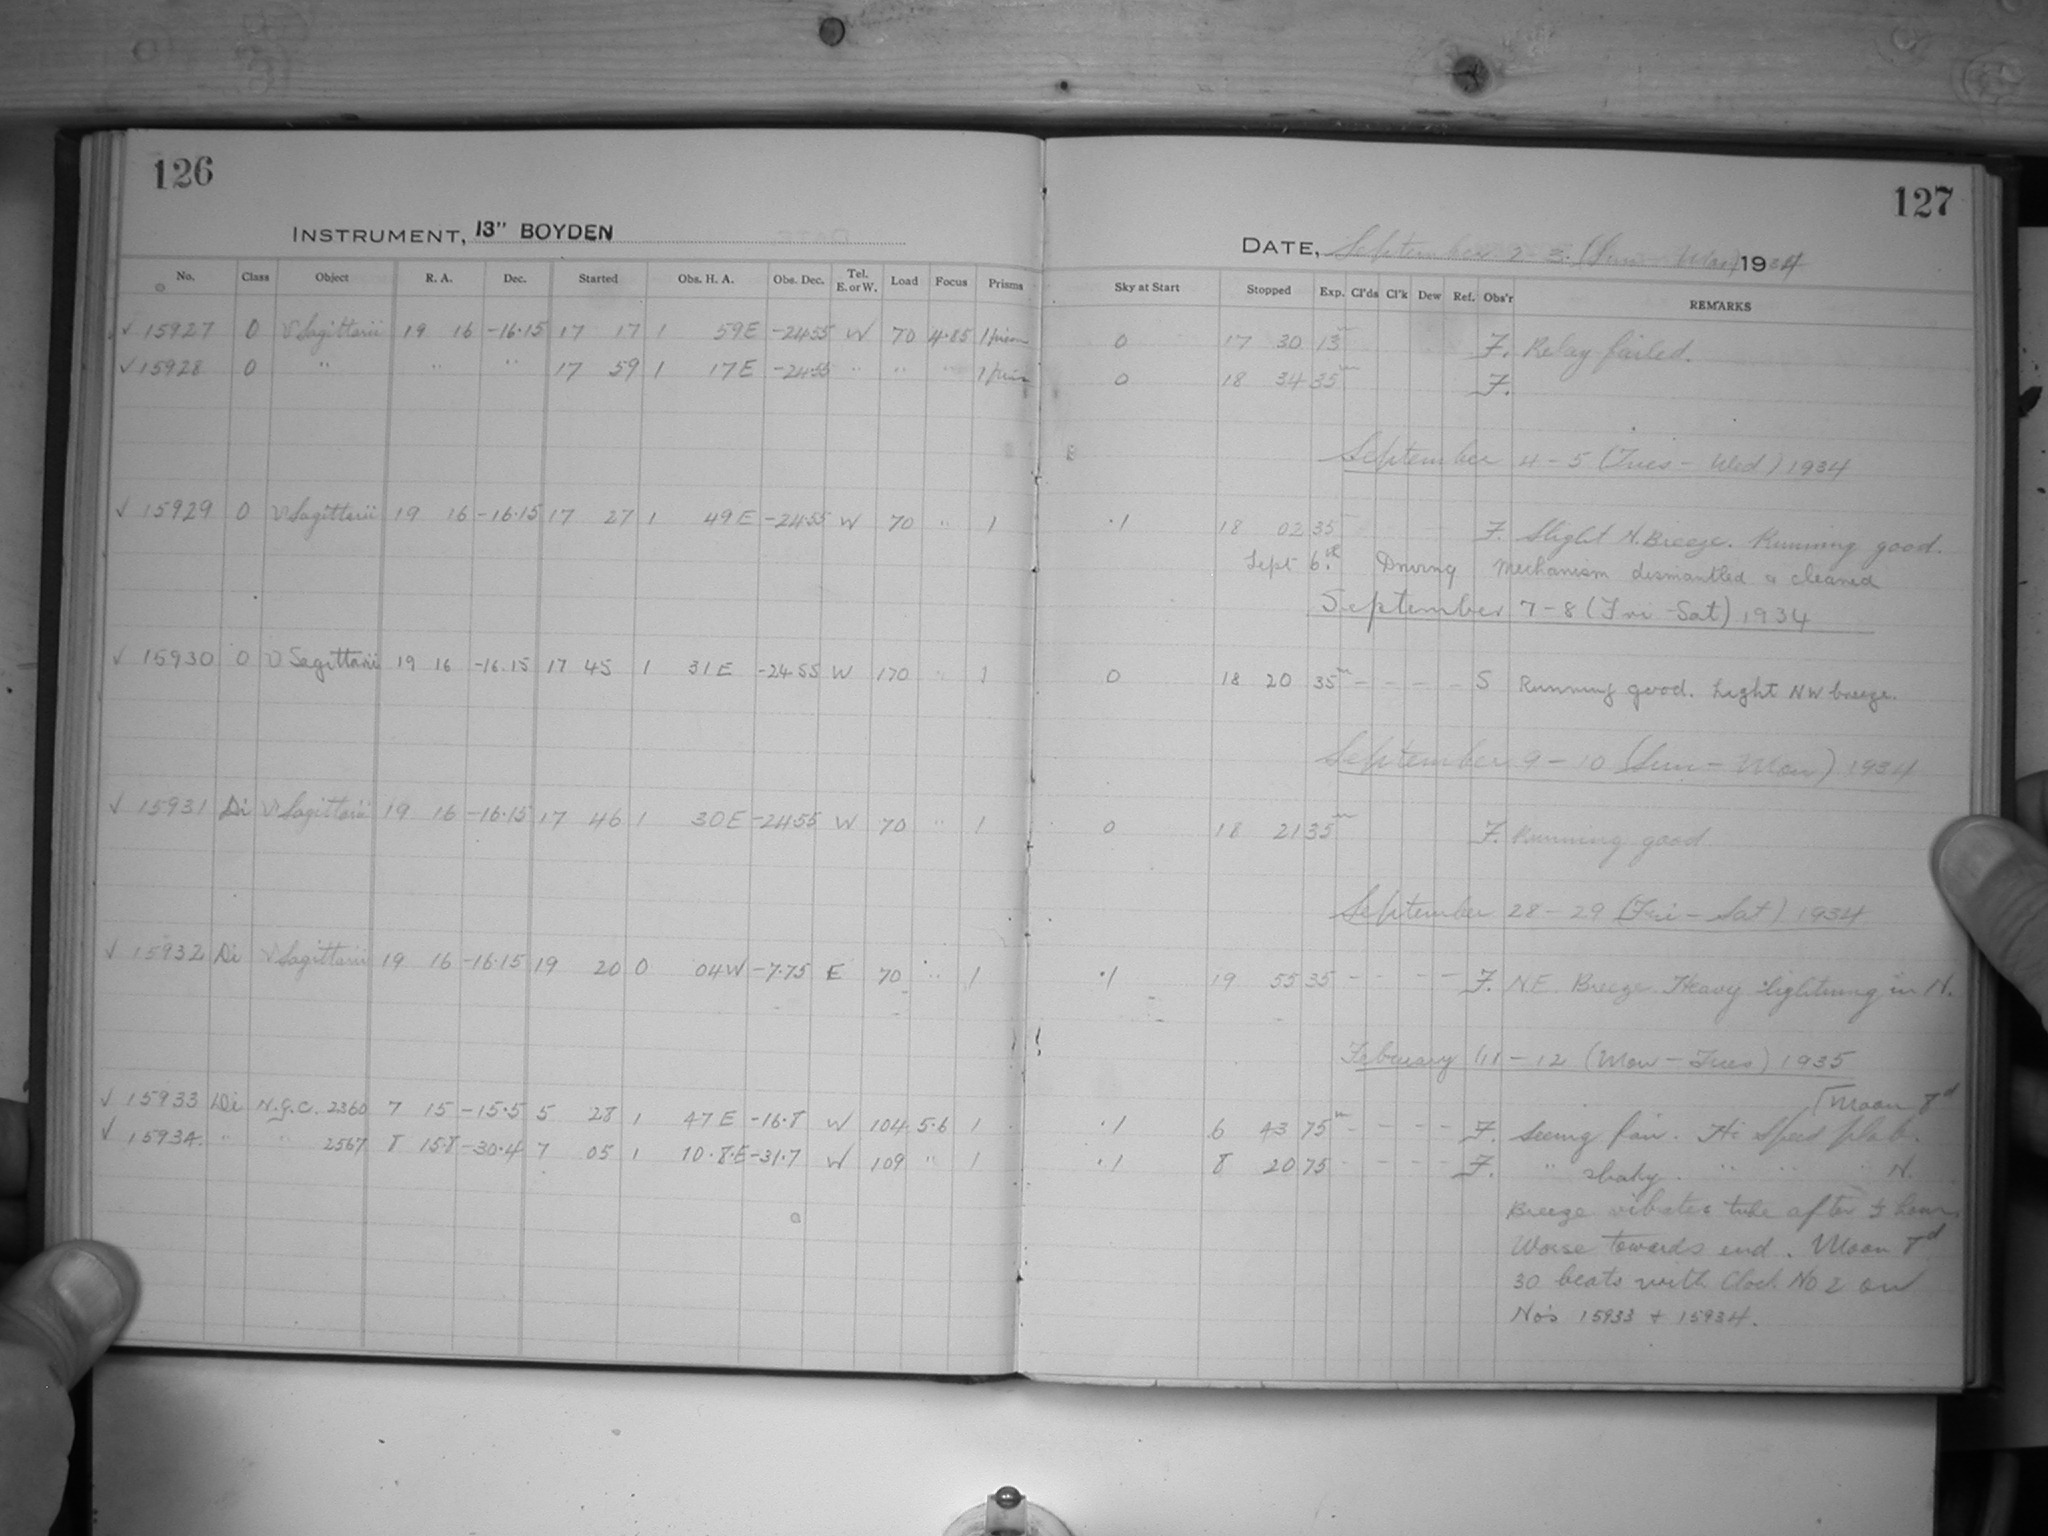 126
INSTRUMENT, 13" BOYDEN
No. Class Object R. A. Dec. Started Obs. H. A. Obs. Dec. Tel. E. or W. Load Focus Prisms
√ 15927 O υ Sagittarii 19 16 -16.15 17 17 1 59E -2455 W 70 4.85 1 prism
√ 15928 O " " " 17 59 1 17E -2455 " " " 1 prism
√ 15929 O υ Sagittarii 19 16 -16.15 17 27 1 49E -2455 W 70 " 1
√ 15930 O υ Sagittarii 19 16 -16.15 17 45 1 31E -2455 W 170 " 1
√ 15931 Di υ Sagittarii 19 16 -16.15 17 46 1 30E -2455 W 70 " 1
√ 15932 Di υ Sagittarii 19 16 -16.15 19 20 0 04W -7.75 E 70 " 1
√ 15933 Di N.G.C. 2360 7 15 -15.5 5 28 1 47E -16.8 W 104 5.6 1
√ 15934 " " 2567 8 15.8 -30.4 7 05 1 10.8.E -31.7 W 109 " 1
127
DATE, September 2-3 (Sun - Mon) 1934
Sky at Start Stopped Exp. Cl'ds Cl'k Dew Ref. Obs'r REMARKS
0 17 30 13m F. Relay failed.
0 18 34 35m F.
September 4-5 (Tues - Wed) 1934
.1 18 02 35 F. Slight N. Breeze. Running good.
Sept 6th. Driving mechanism dismantled & cleaned
September 7-8 (Fri - Sat) 1934
0 18 20 35m - - - - S Running good. Light NW breeze.
September 9-10 (Sun - Mon) 1934
0 18 21 35m F. Running good
September 28-29 (Fri - Sat) 1934
.1 19 55 35 - - - - F. N.E. Breeze. Heavy lightning in N.
February 11-12 (Mon - Tues) 1935
Moon 8d
.1 6 43 75m - - - - F. Seeing fair. Hi Speed plate.
.1 8 20 75 - - - - F. " shaky. " " " N.
Breeze vibrates tube after ½ hour.
Worse towards end. Moon 8d
30 beats with Clock No 2 on
No's 15933 + 15934.